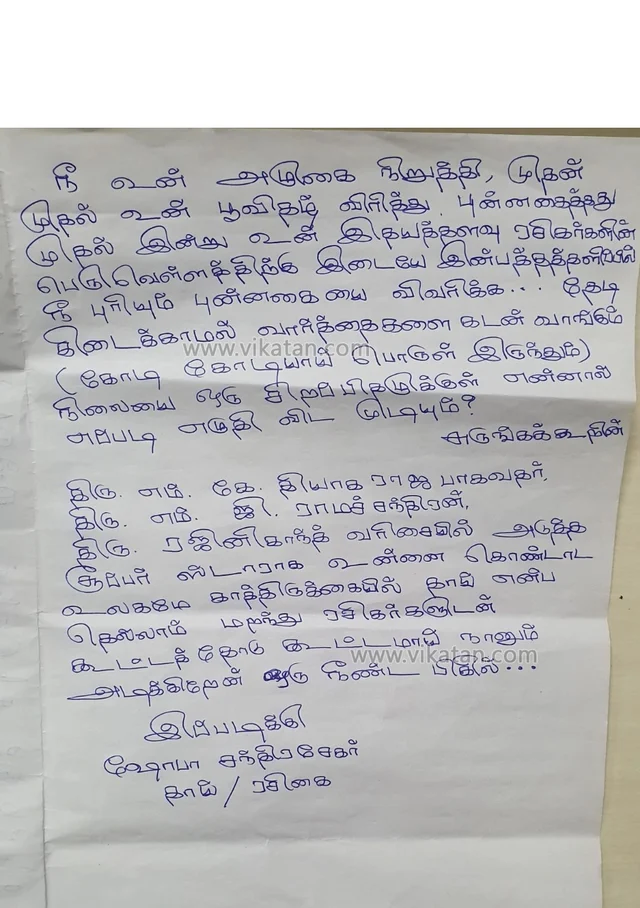 நீ உன் அழுகை நிறுத்தி, முதன்
முதல் உன் பூவிதழ் விரித்து புன்னகைத்தது
முதல் இன்று உன் இதயத்தளவு ரசிகர்களின்
பெருவெள்ளத்திற்கு இடையே
நீ புரியும் புன்னகையை விவரிக்க... தேடி
கிடைக்காமல் வார்த்தைகளை கடன் வாங்கும்
www.vikatan.com
(கோடி கோடியாய் பொருள் இருந்தும்)
நிலையை ஒரு சிறப்பிதழுக்குள் என்னால்
எப்படி எழுதி விட முடியும்?
சுருங்கக்கூறின்
திரு. எம். கே. தியாகராஜ பாகவதர்,
திரு. எம். ஜி. ராமச்சந்திரன்,
திரு. ரஜினிகாந்த் வரிசையில் அடுத்த
சூப்பர் ஸ்டாராக உன்னை கொண்டாட
உலகமே காத்திருக்கையில் தாய் என்ப
தெல்லாம் மறந்து ரசிகர்களுடன்
கூட்டத்தோடு கூட்டமாய் நானும்
www.vikatan.com
அடிக்கிறேன் ஒரு நீண்ட விசில்...
இப்படிக்கு
ஷோபா சந்திரசேகர்
தாய் / ரசிகை